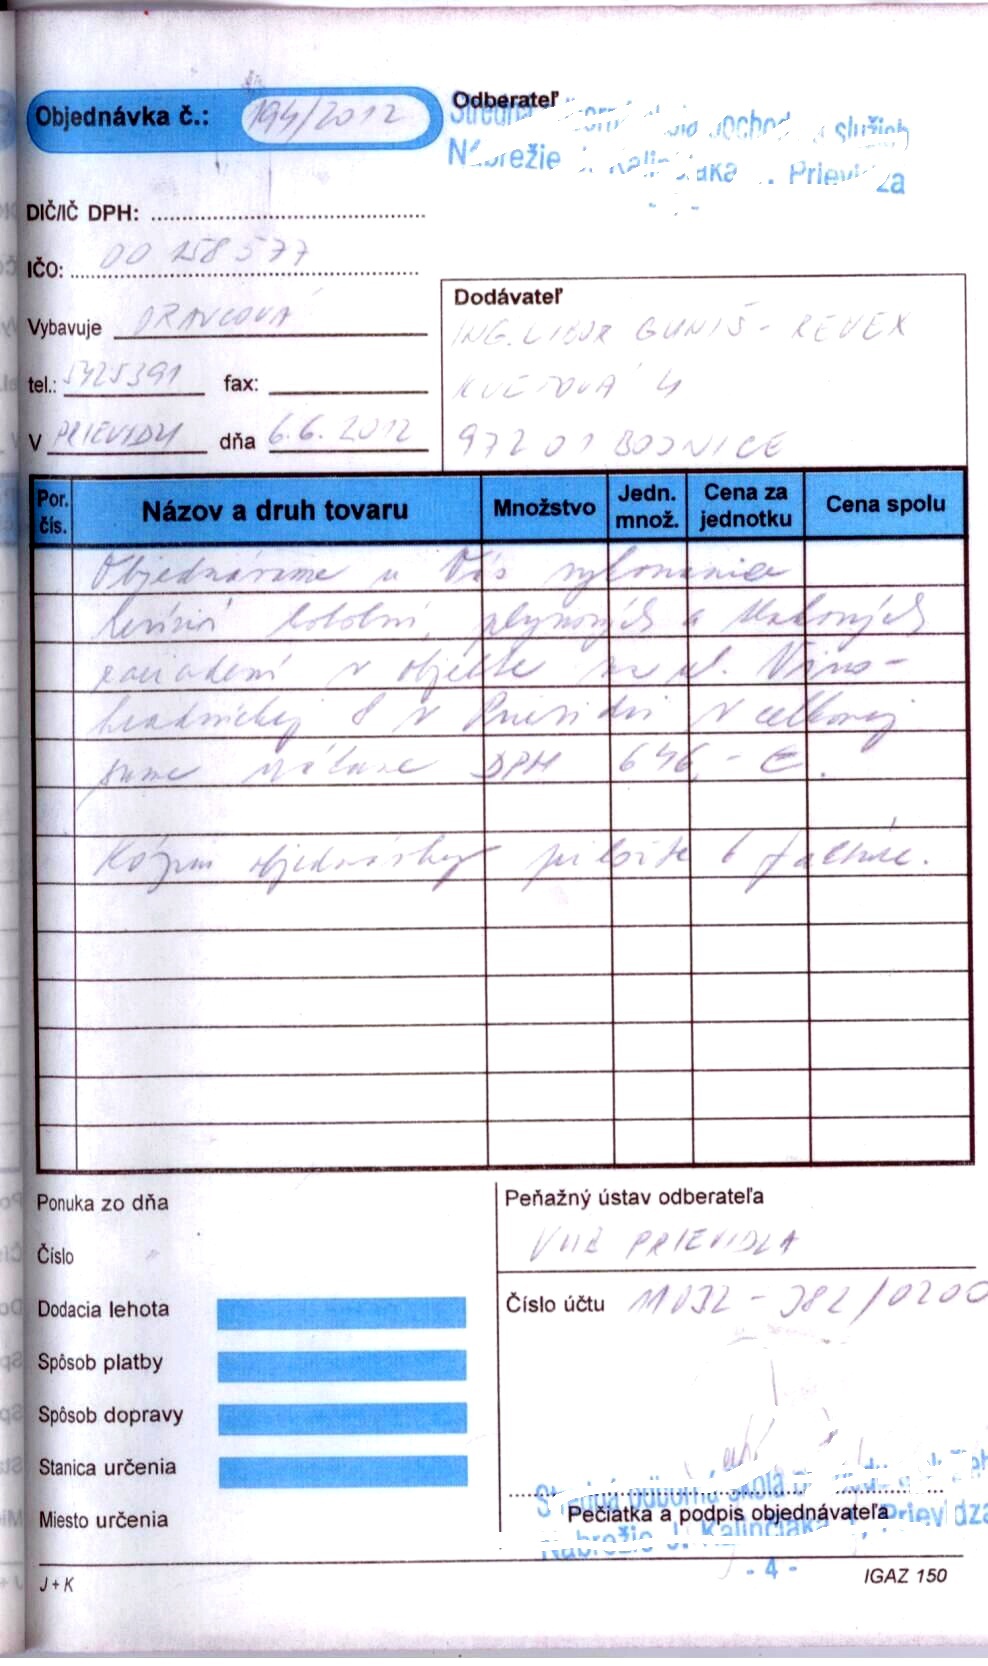 Objednávka č.: 194/2012
Odberateľ
Stredná odborná škola obchodu a služieb
Nábrežie J. Kalinčiaka 1, Prievidza
DIČ/IČ DPH:
IČO: 00 158 577
Vybavuje ORAVCOVÁ
tel.: 5425391 fax:
V PRIEVIDZI dňa 6.6.2012
Dodávateľ
ING. LIBOR GUNIŠ - REVEX
KVETOVÁ 4
972 01 BOJNICE
Por. čís. Názov a druh tovaru Množstvo Jedn. množ. Cena za jednotku Cena spolu
Objednávame u Vás vykonanie
revízií kotolní, plynových a tlakových
zariadení v objekte na ul. Vino-
hradníckej 8 v Prievidzi v celkovej
sume vrátane DPH 646,- €.
Kópiu objednávky priložte k faktúre.
Ponuka zo dňa
Číslo
Dodacia lehota
Spôsob platby
Spôsob dopravy
Stanica určenia
Miesto určenia
Peňažný ústav odberateľa
VÚB PRIEVIDZA
Číslo účtu 11032-382/0200
Stredná odborná škola obchodu a služieb
Pečiatka a podpis objednávateľa
Nábrežie J. Kalinčiaka 1, Prievidza
- 4 -
J + K
IGAZ 150